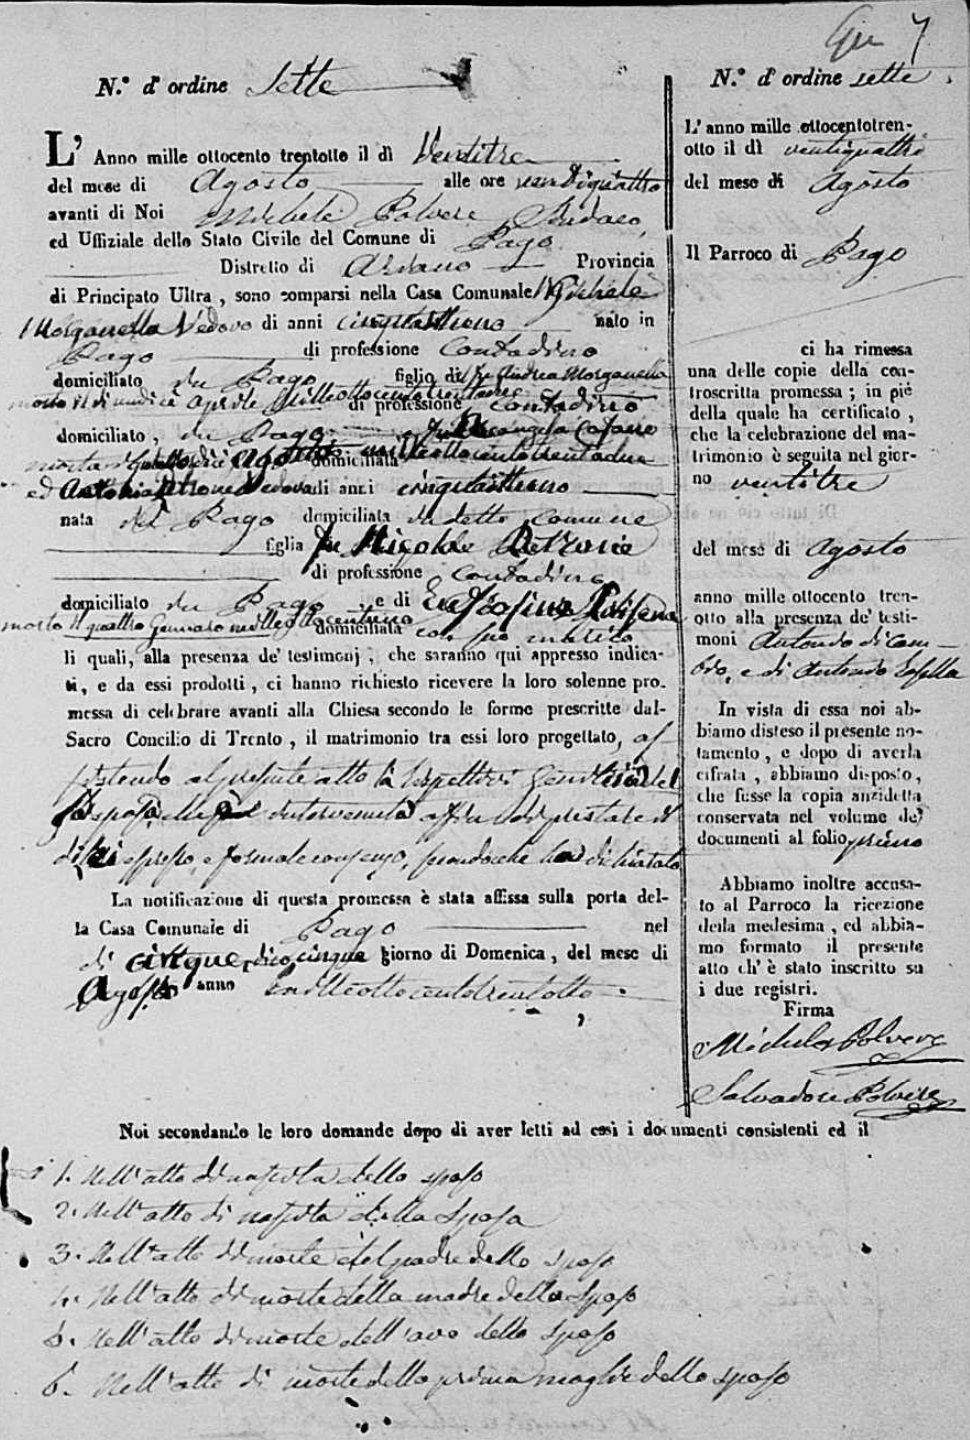 7
N.° d'ordine Sette
L' Anno mille ottocento trentotto il dì Ventitre
del mese di Agosto alle ore ventiquattro
avanti di Noi Michele Polvere Sindaco,
ed Uffiziale dello Stato Civile del Comune di Pago
Distretto di Ariano Provincia
di Principato Ultra, sono comparsi nella Casa Comunale Michele
Morganella Vedovo di anni cinquantuno nato in
Pago di professione Contadino
domiciliato in Pago figlio di fu Andrea Morganella
morto il dì undici aprile milleottocento di professione Contadino
domiciliato, in Pago fu Arcangela Catano
morta milleottocentotrentadue domiciliata
ed Antonia Petrone Vedova di anni cinquantuno
nata in Pago domiciliata in detto Comune
figlia fu Nicola Petrone
di professione Contadino
domiciliato in Pago, e di
morto il quattro Gennaro domiciliata con suo marito
li quali, alla presenza de' testimonj, che saranno qui appresso indica-
ti, e da essi prodotti, ci hanno richiesto ricevere la loro solenne pro-
messa di celebrare avanti alla Chiesa secondo le forme prescritte dal-
Sacro Concilio di Trento, il matrimonio tra essi loro progettato, as-
sistendo al presente atto
sposa, intervenuta prestare il
espresso, e formale consenso, secondo che ha dichiarato
La notificazione di questa promessa è stata affissa sulla porta del-
la Casa Comunale di Pago nel
di cinque, dico cinque giorno di Domenica, del mese di
Agosto anno milleottocentotrentotto.
N.° d'ordine sette.
L'anno mille ottocentotren-
otto il dì ventiquattro
del mese di Agosto
Il Parroco di Pago
ci ha rimessa
una delle copie della con-
troscritta promessa; in piè
della quale ha certificato,
che la celebrazione del ma-
trimonio è seguita nel gior-
no ventitre
del mese di Agosto
anno mille ottocento tren-
otto alla presenza de' testi-
moni Antonio di Cam-
bio, e di Antonio
In vista di essa noi ab-
biamo disteso il presente no-
tamento, e dopo di averla
cifrata, abbiamo disposto,
che fusse la copia anzidetta
conservata nel volume de'
documenti al folio primo
Abbiamo inoltre accusa-
to al Parroco la ricezione
della medesima, ed abbia-
mo formato il presente
atto ch' è stato inscritto su
i due registri.
Firma
Michele Polvere
Salvadore Polvere
Noi secondando le loro domande dopo di aver letti ad essi i documenti consistenti ed il
1. Nell'atto di nascita dello sposo
2. Nell'atto di nascita della sposa
3. Nell'atto di morte del padre dello sposo
4. Nell'atto di morte della madre dello sposo
5. Nell'atto di morte dell'avo dello sposo
6. Nell'atto di morte della prima moglie dello sposo